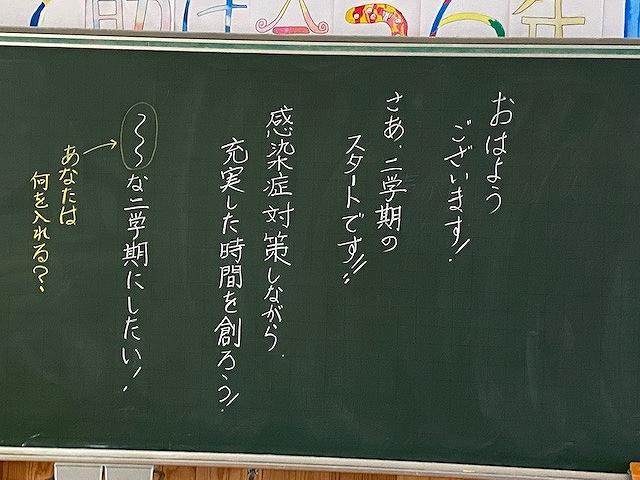 助け合う
おはよう
ございます!
さあ、二学期の
スタートです!!
感染症対策しながら、
充実した時間を創ろう!!
〜〜な二学期にしたい!
あなたは
何を入れる?